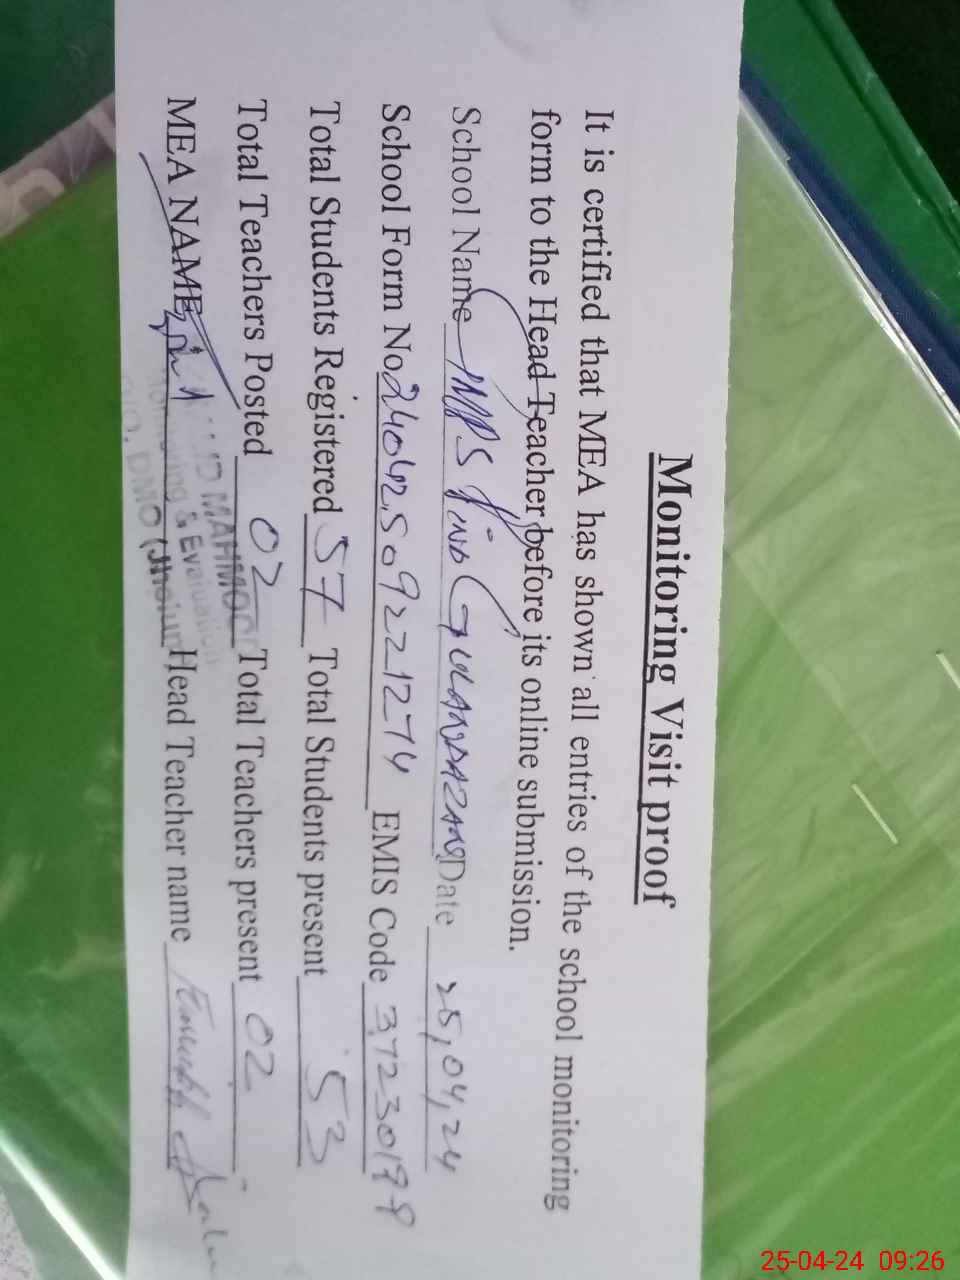 Monitoring Visit proof
It is certified that MEA has shown all entries of the school monitoring
form to the Head Teacher before its online submission.
School Name GULANDAZAN Date 25,04,24
School Form No. EMIS Code
Total Students Registered 57 Total Students present 53
Total Teachers Posted 02 Total Teachers present 02
MEA NAME Head Teacher name
MAHMOOD
Monitoring & Evaluation
O/O. DMO (Jhelum
25-04-24 09:26